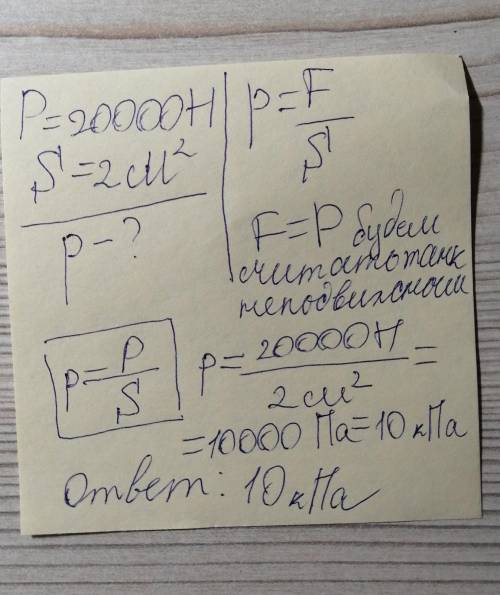 P=20000Н
S=2см²
p-?
p=F/S
F=P будем
считать танк
неподвижным
p=P/S
p=20000Н/2см²=
=10000 Па=10кПа
Ответ: 10кПа